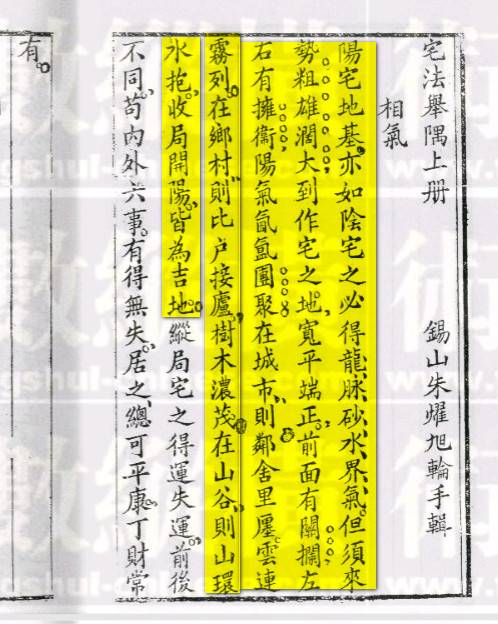 宅法舉隅上册
錫山朱耀旭輪手輯
相氣
陽宅地基亦如陰宅之必得龍脉砂水界氣但須來
勢粗雄濶大到作宅之地寬平端正前面有關攔左
右有擁衞陽氣氤氲團聚在城市則鄰舍里㕓雲連
霧列在鄉村則比户接廬樹木濃茂在山谷則山環
水抱收局開陽皆為吉地縱局宅之得運失運前後
不同苟内外六事有得無失居之總可平康丁財常
有